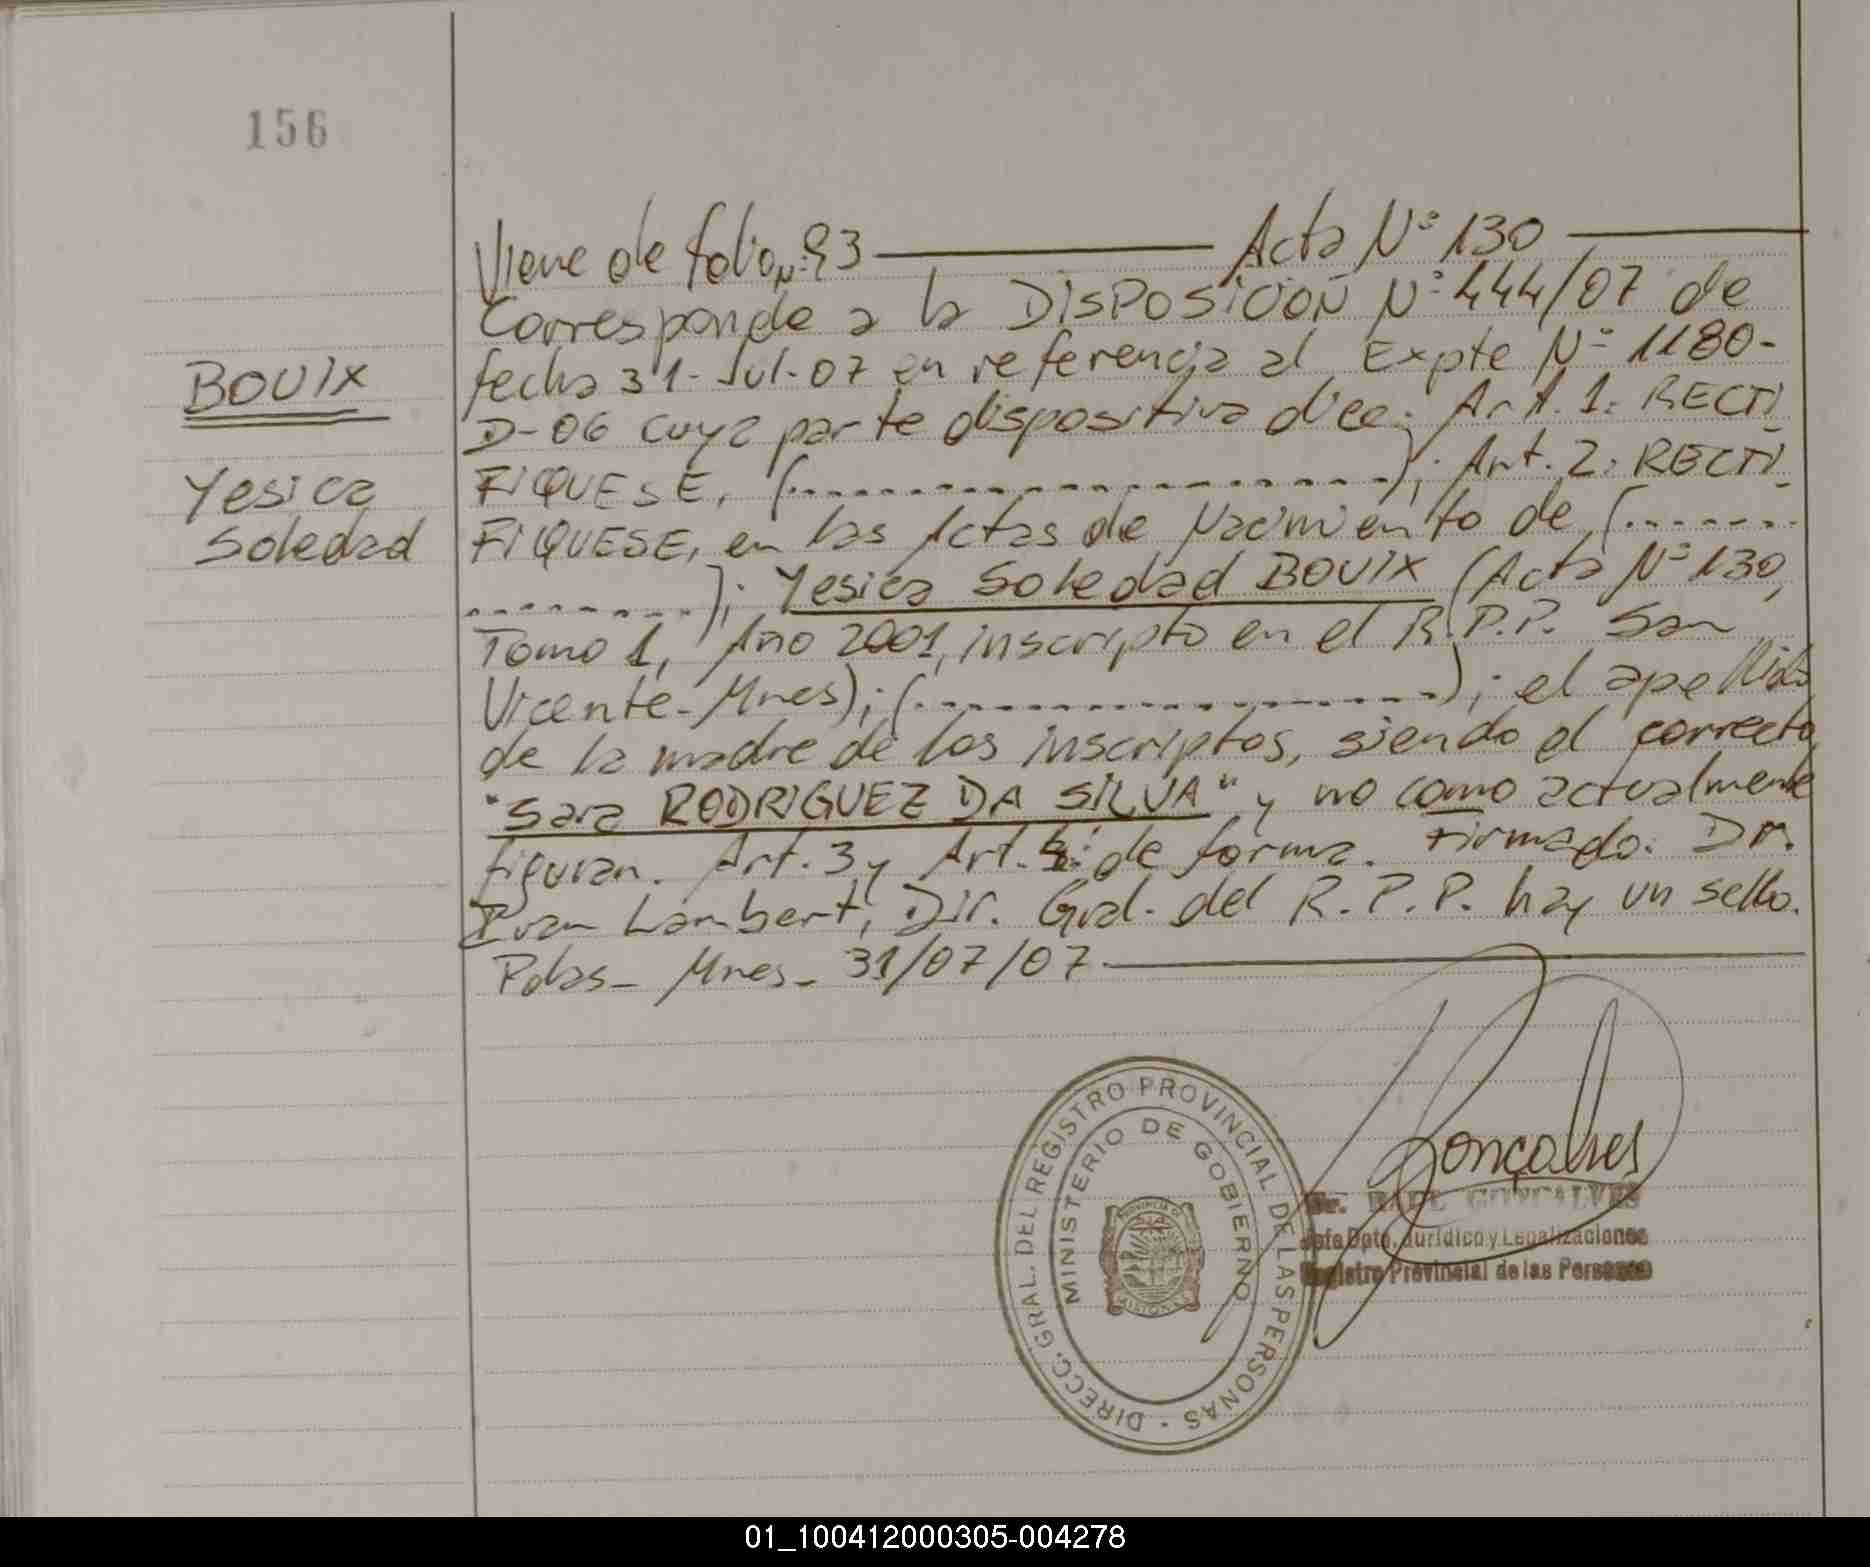 156
Viene de folio Nº 93 Acta Nº 130
Corresponde a la DISPOSICION Nº 444/07 de
fecha 31-Jul-07 en referencia al Expte Nº 1180-
D-06 cuya parte dispositiva dice: Art. 1: RECTI
FIQUESE, (....................); Art. 2: RECTI
FIQUESE, en las Actas de Nacimiento de (.......
.........); Yesica Soledad BOUIX (Acta Nº 130,
Tomo 1, Año 2001, inscripto en el R.P.P. San
Vicente-Mnes); (..................); el apellido
de la madre de los inscriptos, siendo el correcto
"Sara RODRIGUEZ DA SILVA" y no como actualmente
figuran. Art. 3 y Art. 4: de forma. Firmado: Dr.
Ivan Lambert, Dir. Gral. del R.P.P. hay un sello.
Pdas- Mnes- 31/07/07
BOUIX
Yesica
Soledad
DIRECC. GRAL. DEL REGISTRO PROVINCIAL DE LAS PERSONAS
MINISTERIO DE GOBIERNO
PROVINCIA DE
MISIONES
Gonçalves
Dr. GONCALVES
Jefe Dpto. Jurídico y Legalizaciones
Registro Provincial de las Personas
01_100412000305-004278